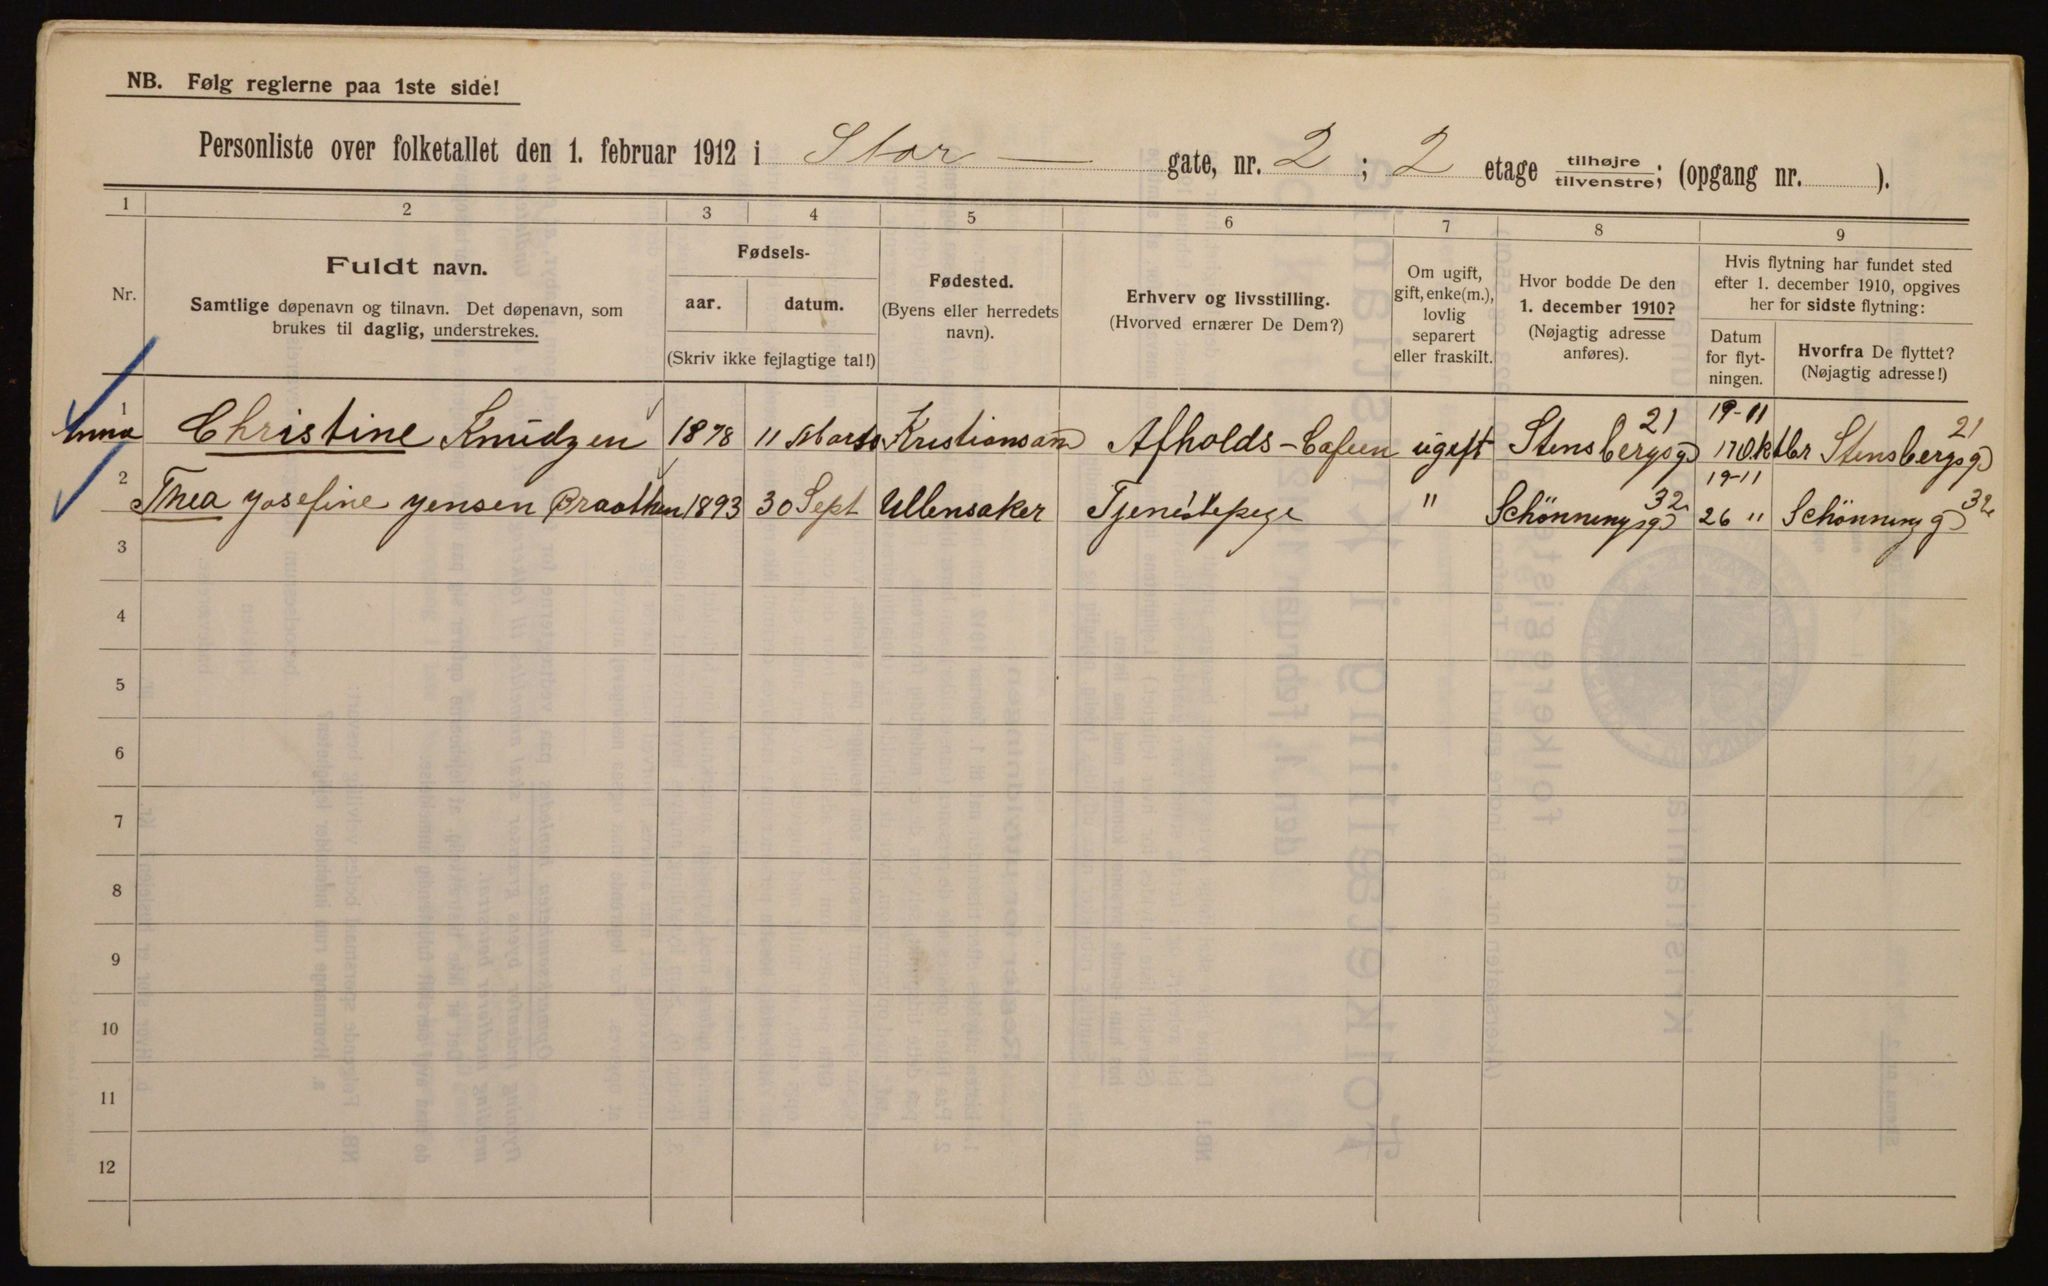 NB. Følg reglerne paa 1ste side!
Personliste over folketallet den 1. februar 1912 i Stor — gate, nr. 2 ; 2 etage tilhøjre/tilvenstre; (opgang nr. ).
1 2 3 4 5 6 7 8 9
Nr.
Fuldt navn.
Samtlige døpenavn og tilnavn. Det døpenavn, som
brukes til daglig, understrekes.
Fødsels-
aar. datum.
(Skriv ikke fejlagtige tal!)
Fødested.
(Byens eller herredets
navn).
Erhverv og livsstilling.
(Hvorved ernærer De Dem?)
Om ugift,
gift, enke(m.),
lovlig
separert
eller fraskilt.
Hvor bodde De den
1. december 1910?
(Nøjagtig adresse
anføres).
Hvis flytning har fundet sted
efter 1. december 1910, opgives
her for sidste flytning:
Datum
for flyt-
ningen.
Hvorfra De flyttet?
(Nøjagtig adresse!)
1 Anna Christine Knudzen 1878 11 Marts Kristiansand Afholds-Cafeen ugift Stensbergsg 21 19-11 17 Oktbr Stensbergsg 21
2 Thea Josefine Jensen Braathen 1893 30 Sept Ullensaker Tjenestepige " Schønningsg 32 19-11 26 " Schønning g 32
3
4
5
6
7
8
9
10
11
12